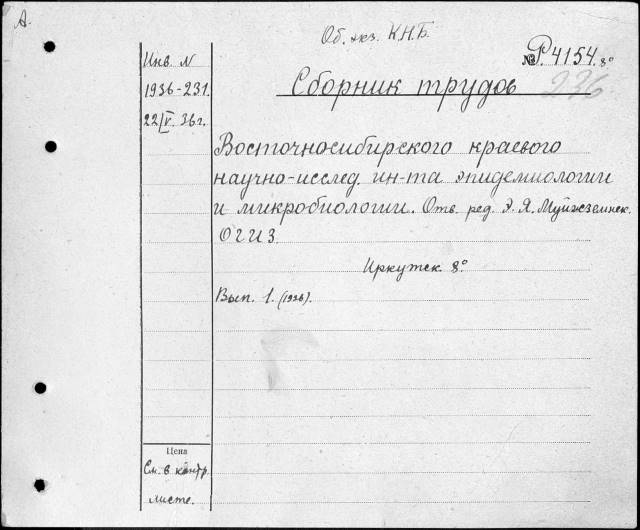 А.
Об. экз. К.Н.Б.
№ Р. 4154. 8°
236
Инв. N
1936-231.
22/V. 36г.
Сборник трудов
Восточносибирского краевого
научно-исслед. ин-та эпидемиологии
и микробиологии. Отв. ред. Э. Я. Муйжземнек.
ОГИЗ.
Иркутск. 8°
Вып. 1. (1936).
Цена
См. в контр.
листе.